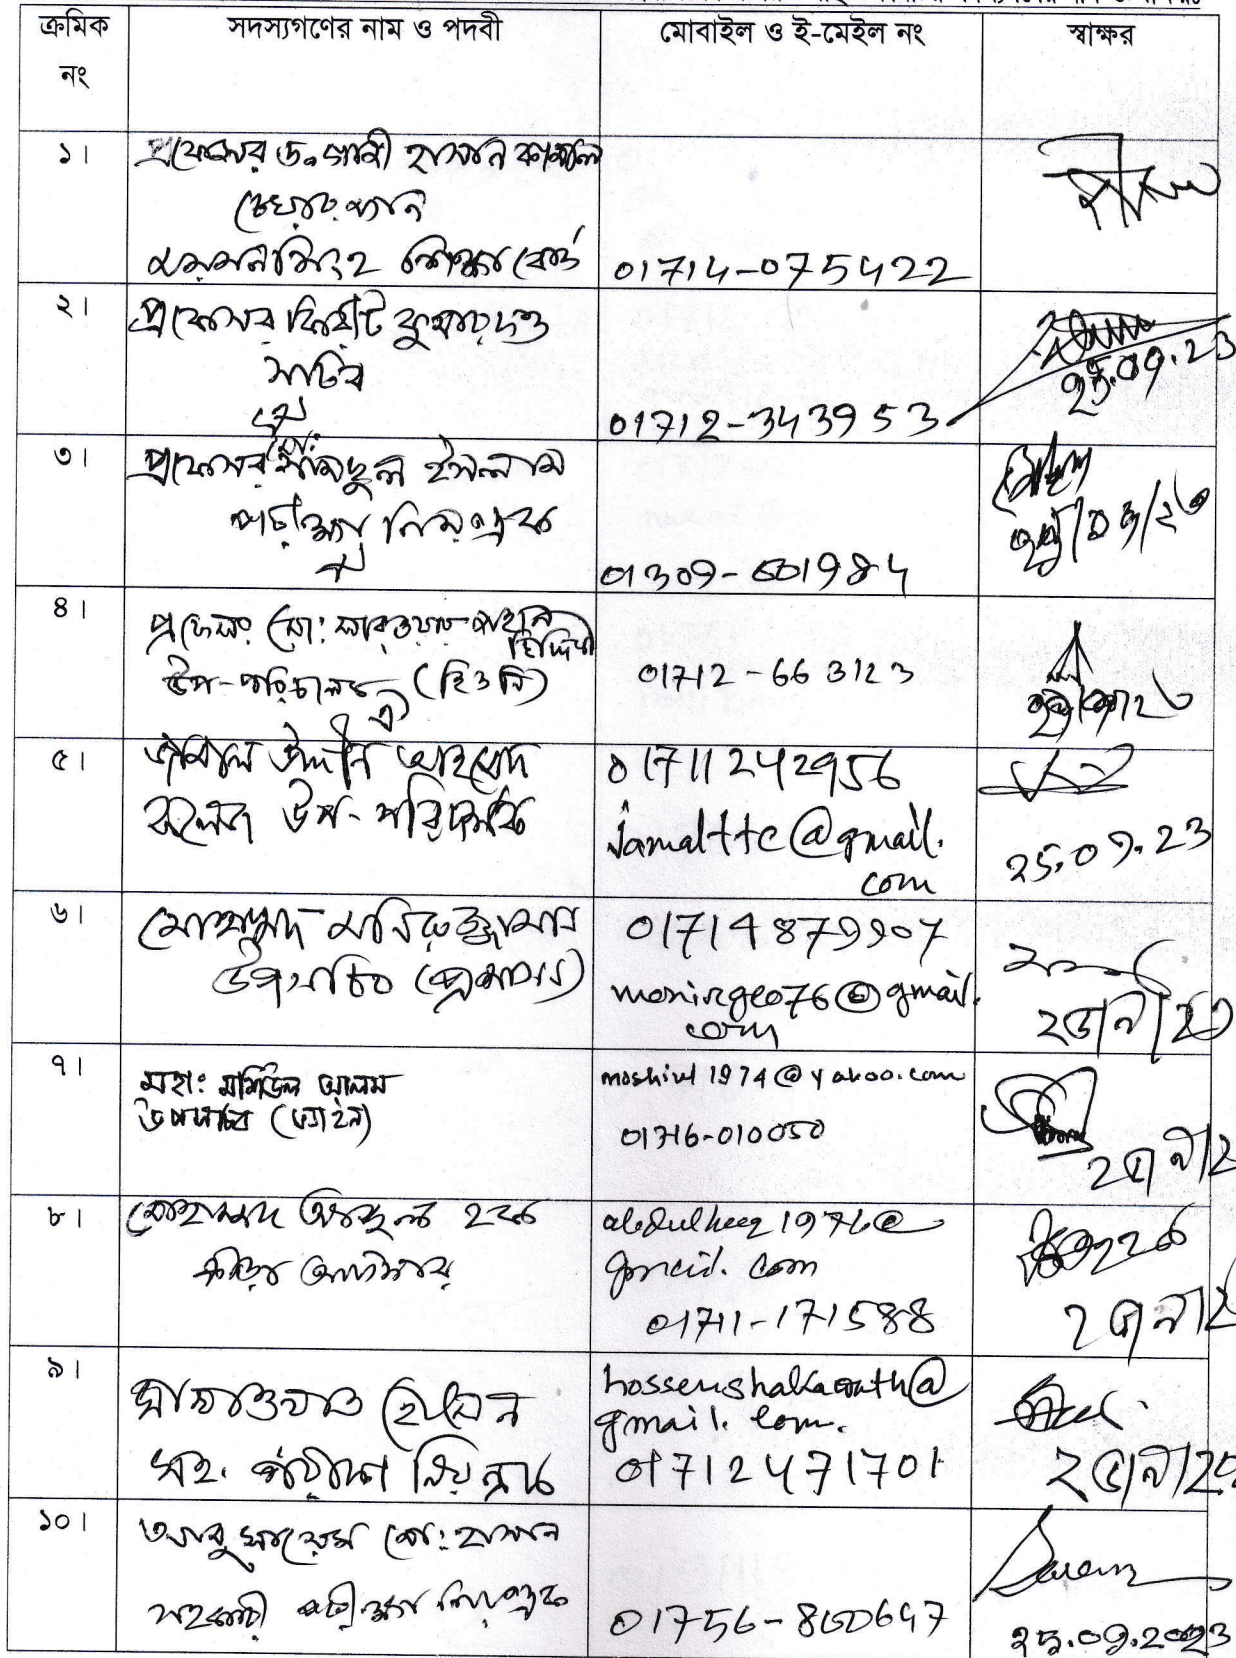 ক্রমিক নং
সদস্যগণের নাম ও পদবী
মোবাইল ও ই-মেইল নং
স্বাক্ষর
১।
প্রফেসর ড. গাজী হাসান কামাল
চেয়ারম্যান
ময়মনসিংহ শিক্ষা বোর্ড
01714-075422
২।
প্রফেসর কিরীট কুমার দত্ত
সচিব
ঐ
01712-343953
25.09.23
৩।
প্রফেসর মো: শামছুল ইসলাম
পরীক্ষা নিয়ন্ত্রক
ঐ
01309-601984
৪।
প্রফেসর মো: সিদ্দিকী
উপ-পরিচালক (হি ও নি)
ঐ
01712-663123
৫।
জামাল উদ্দীন আহমেদ
কলেজ উপ-পরিদর্শক
01711242956
jamalttc@gmail.
com
25.09.23
৬।
মোহাম্মদ মনিরুজ্জামান
উপসচিব (প্রশাসন)
01714879907
moningeo76@gmail.
com
৭।
মহা: মশিউল আলম
উপসচিব
moshiul1974@yahoo.com
01716-010050
৮।
মোহাম্মদ আব্দুল হক
ক্রীড়া অফিসার
gmail. com
01711-171588
৯।
সাখাওয়াত হোসেন
সহ. পরীক্ষা নিয়ন্ত্রক
gmail. com.
01712471701
১০।
আবু সায়েম মো: হাসান
সহকারী পরীক্ষা নিয়ন্ত্রক
01756-860647
25.09.2023